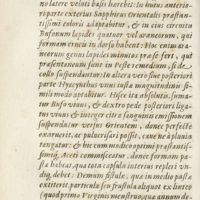 no latere veluti basi haerebit: In huius anteriori
parte exterius Sapphirus Orientalis praestan-
tissimi coloris adaptabitur, & in eius circuitu
Bufonum lapides quatuor vel arancorum, qui
formam crucis in dorso habent: Hoc enim ara-
neorum genus lapidis munus praefefert, qui
praesentaneum sunt in Peste remedium, si de
collo suspendantur: In altera vero siue posteriori
parte Hyacynthus unus iustae magnitudinis si-
mili modo aptabitur. Hisce ita absolutis, suma-
tur Bufo vivus, & dextro pede posteriori liga-
tus, & integer citra sanguinis emissionem
suspendatur versus Orientem, donec perfecte
exaruerit, ac pulverisari possit, cave ne manu
tangatur: & huc cum medico primi praestan-
tissimi, Aceti commisceatur, donec formam pa-
stae habeat, qua tota capsula interius repleri vn-
diq; debet: Demum fistulae, quae in medio pa-
stae extiterit, particula seu frustula aliquot ex linteo
(quod primo Virginis menstruo, quam annum de-